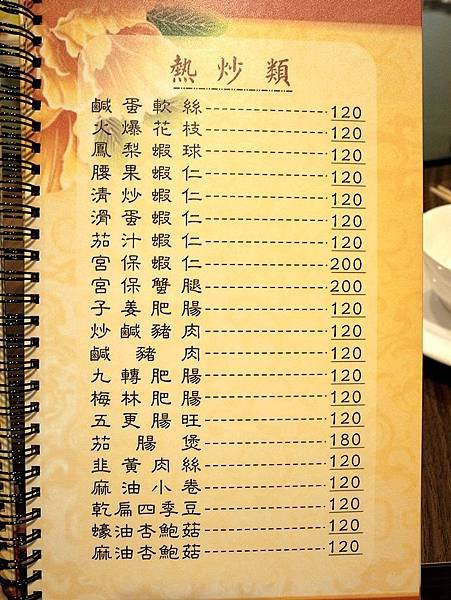 熱炒類
鹹蛋軟絲 120
火爆花枝 120
鳳梨蝦球 120
腰果蝦仁 120
清炒蝦仁 120
滑蛋蝦仁 120
茄汁蝦仁 120
宮保蝦仁 200
宮保蟹腿 200
子姜肥腸 120
炒鹹豬肉 120
鹹豬肉 120
九轉肥腸 120
梅林肥腸 120
五更腸旺 120
茄腸煲 180
韭黃肉絲 120
麻油小卷 120
乾扁四季豆 120
蠔油杏鮑菇 120
麻油杏鮑菇 120